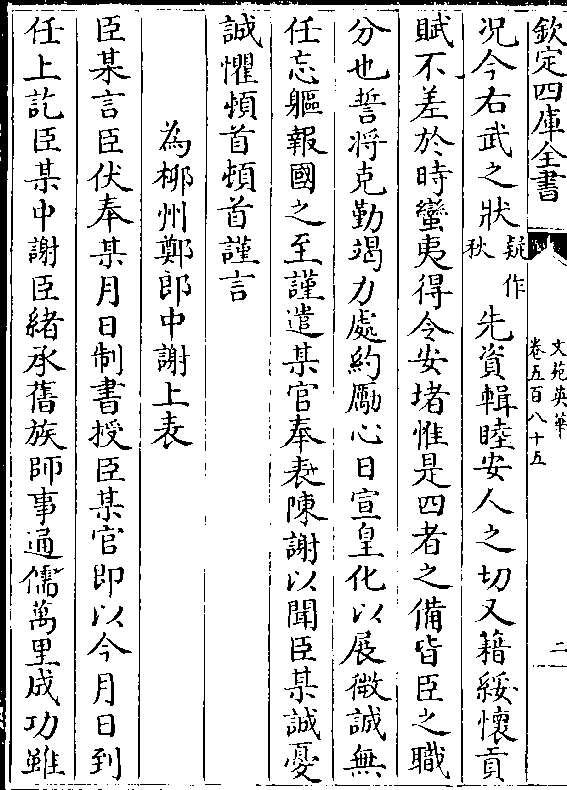 欽定四庫全書
文苑英華
卷五百八十五
二
况今右武之狀疑作秋先資輯睦安人之切又藉綏懷貢
賦不差於時蠻夷得令安堵惟是四者之備皆臣之職
分也誓將克勤竭力處約勵心日宣皇化以展微誠無
任忘軀報國之至謹遣某官奉表陳謝以聞臣某誠憂
誠懼頓首頓首謹言
為柳州鄭郎中謝上表
臣某言臣伏奉某月日制書授臣某官即以今月日到
任上訖臣某中謝臣緒承舊族師事通儒萬里成功雖